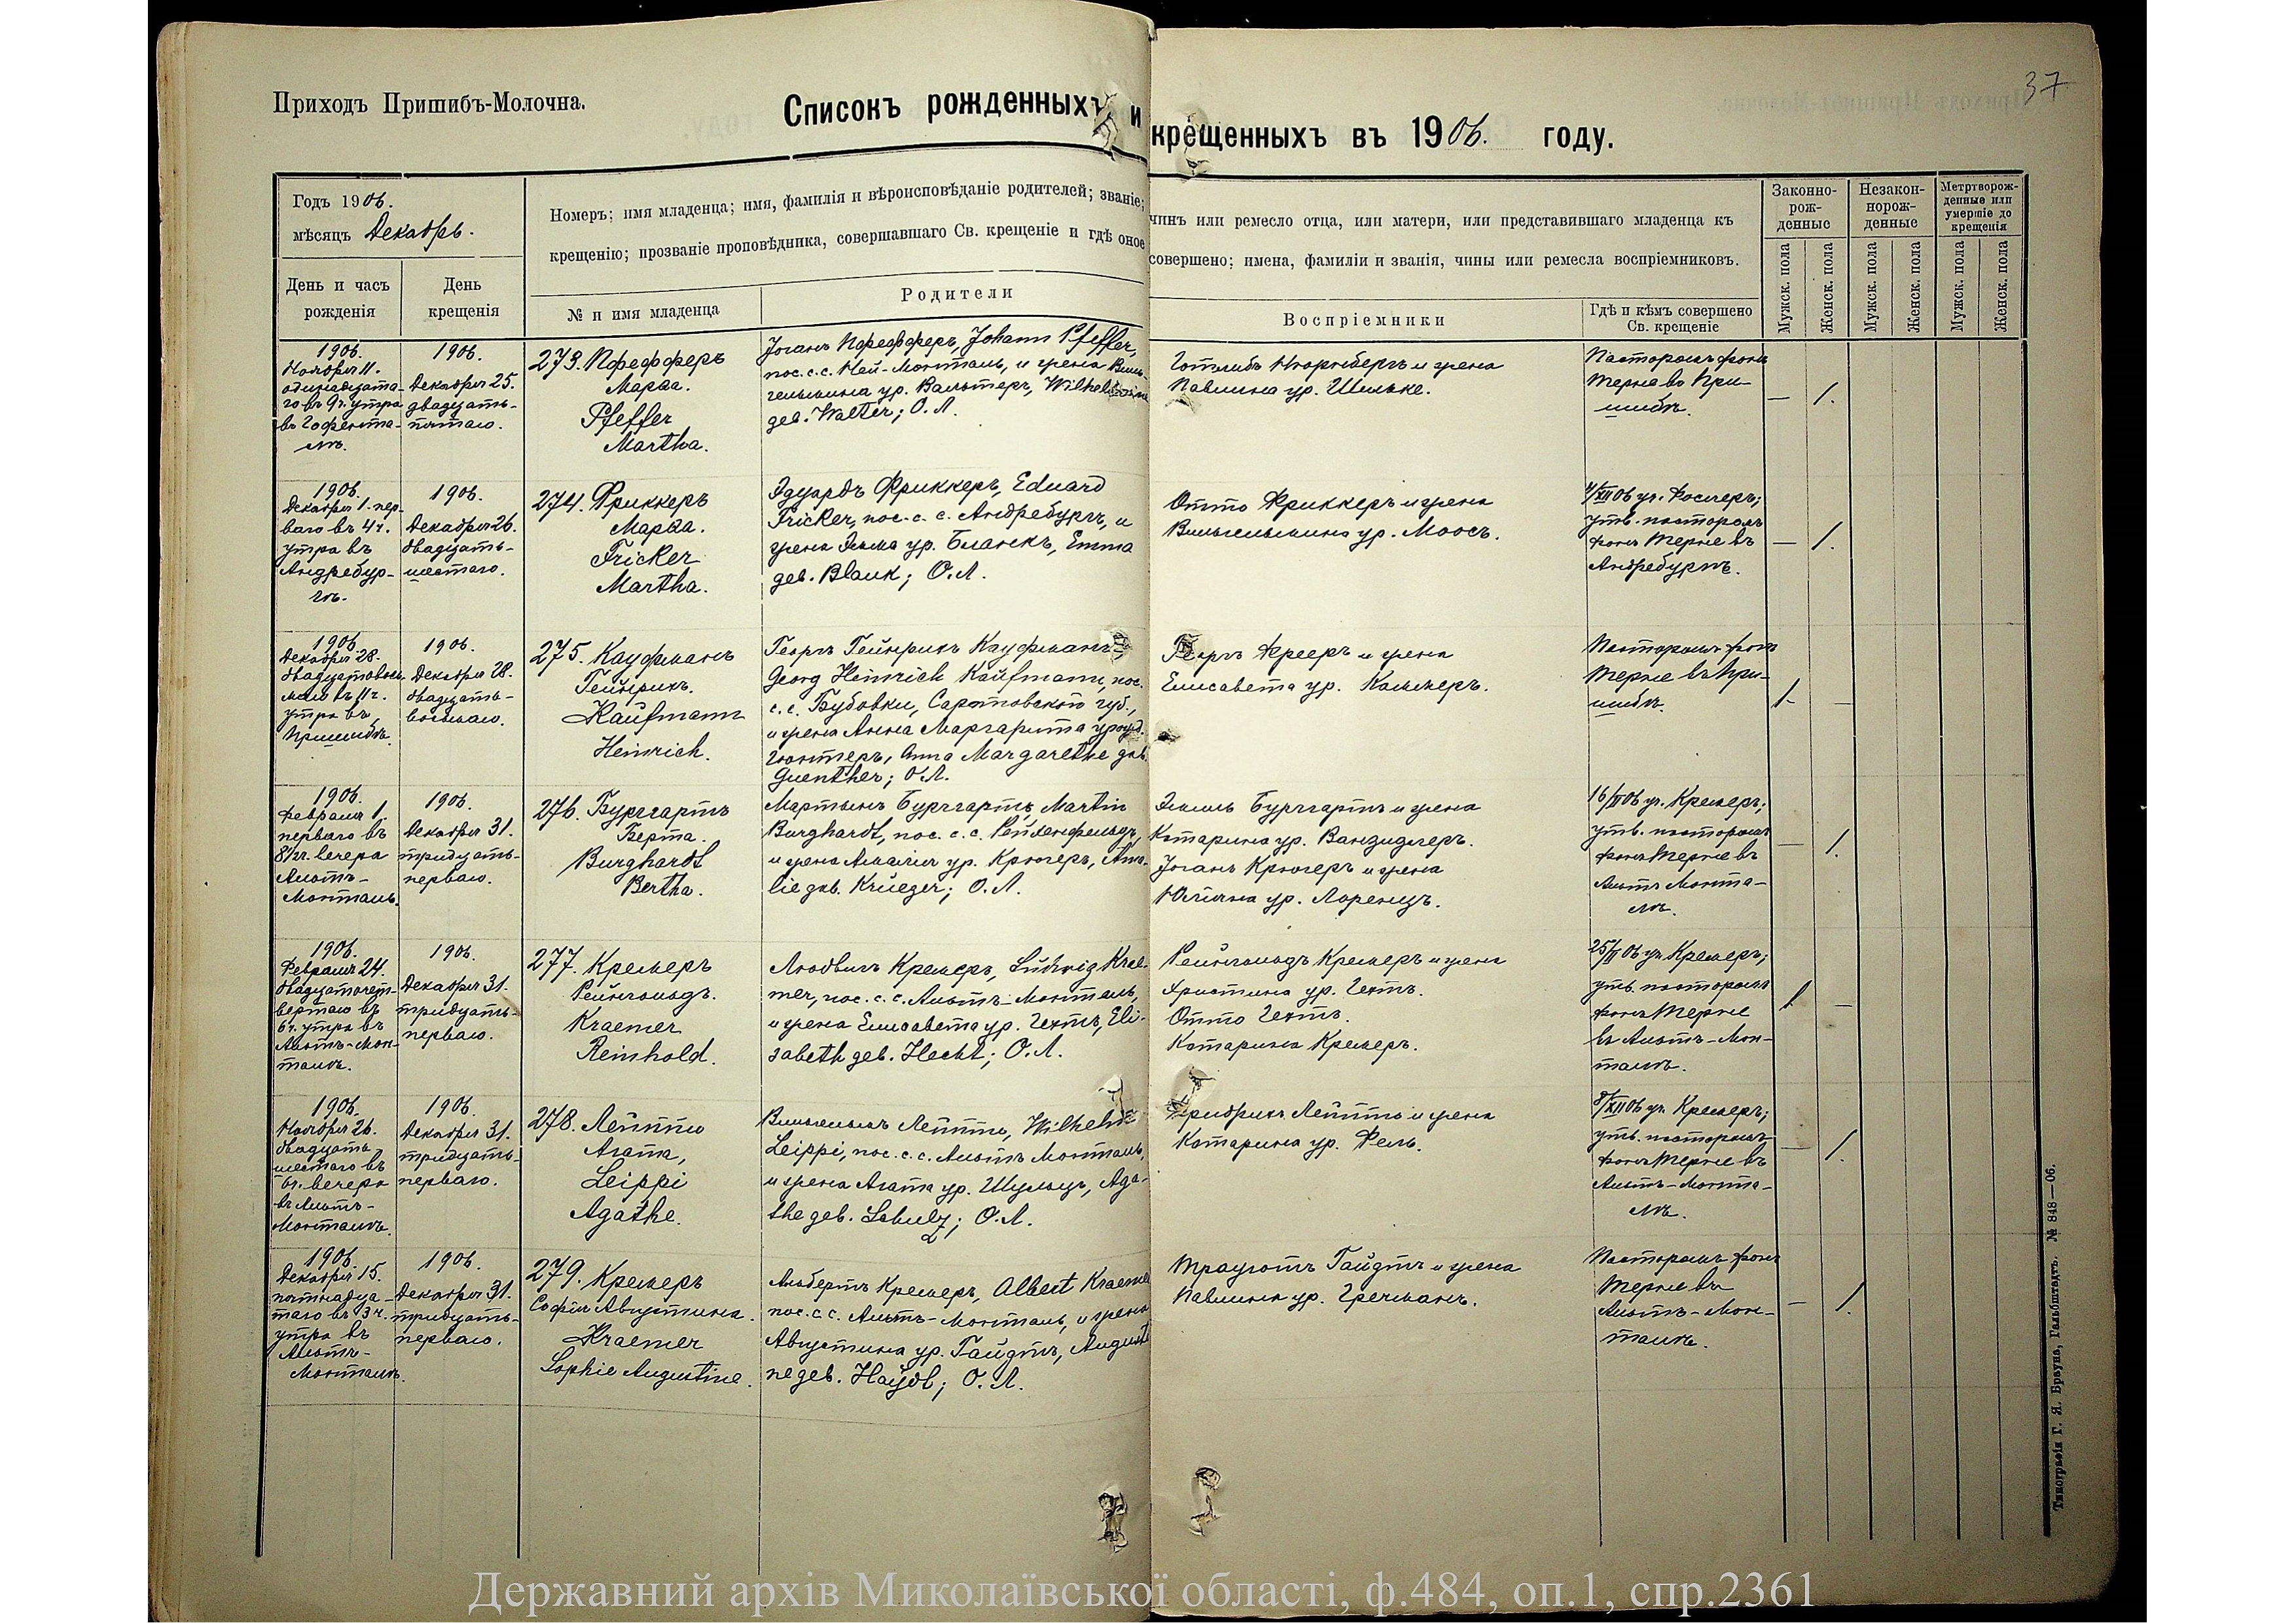 Приходъ Пришибъ-Молочна.
37
Списокъ рожденныхъ и крещенныхъ въ 1906. году.
Годъ 1906.
мѣсяцъ Декабрь.
Номеръ; имя младенца; имя, фамилія и вѣроисповѣданіе родителей; званіе; чинъ или ремесло отца, или матери, или представившаго младенца къ
крещенію; прозваніе проповѣдника, совершавшаго Св. крещеніе и гдѣ оное совершено; имена, фамиліи и званія, чины или ремесла воспріемниковъ.
День и часъ
рожденія
День
крещенія
№ и имя младенца
Родители
Воспріемники
Гдѣ и кѣмъ совершено
Св. крещеніе
Законно-
рож-
денные
Незакон-
норож-
денные
Метртворож-
денные или
умершіе до
крещенія
Мужск. пола
Женск. пола
Мужск. пола
Женск. пола
Мужск. пола
Женск. пола
1906.
Ноября 11.
одинадцата-
го въ 9 ч. утра
въ Гофента-
лѣ.
1906.
Декабря 25.
двадцать-
пятаго.
273. Пфефферъ
Марѳа.
Pfeffer
Martha.
Іоганъ Пфефферъ, Johann Pfeffer,
пос. с. с. Ней-Монталь, и жена Виль-
гельмина ур. Вальтеръ, Wilhelmine
geb. Walter; О. Л.
Готлибъ Нюрнбергъ и жена
Павлина ур. Шильке.
Пасторомъ фонъ
Терне въ При-
шибѣ.
— 1.
1906.
Декабря 1. пер-
ваго въ 4 ч.
утра въ
Андребур-
гѣ.
1906.
Декабря 26.
двадцать-
шестаго.
274. Фриккеръ
Марѳа.
Fricker
Martha.
Эдуардъ Фриккеръ, Eduard
Fricker, пос. с. с. Андребургъ, и
жена Эмма ур. Бланкъ, Emma
geb. Blank; О. Л.
Отто Фриккеръ и жена
Вильгельмина ур. Моосъ.
4/XII 06 уч.
утв. пасторомъ
фонъ Терне въ
Андребургѣ.
— 1.
1906.
Декабря 28.
двадцатовось-
маго въ 11 ч.
утра въ
Пришибѣ.
1906.
Декабря 28.
двадцать-
восьмаго.
275. Кауфманъ
Гейнрихъ.
Kaufmann
Heinrich.
Георгъ Гейнрихъ Кауфманъ,
Georg Heinrich Kaufmann, пос.
с. с. Бубовки, Саратовской губ.,
и жена Анна Маргарита урожд.
Гюнтеръ, Anna Margarethe geb.
Guenther; О. Л.
Георгъ Фрееръ и жена
Елисавета ур. Кольмеръ.
Пасторомъ фонъ
Терне въ При-
шибѣ.
1 —
1906.
Февраля 1.
перваго въ
8½ ч. вечера
Альтъ-
Монталь.
1906.
Декабря 31.
тридцать-
перваго.
276. Бургардтъ
Берта.
Burghardt
Bertha.
Мартынъ Бургардтъ, Martin
Burghardt, пос. с. с. Рейхенфельдъ,
и жена Амалія ур. Крюгеръ, Ama-
lie geb. Krueger; О. Л.
Эмиль Бургардтъ и жена
Катарина ур. Ванзидлеръ.
Іоганъ Крюгеръ и жена
Юліана ур. Лоренцъ.
16/II 06 уч. Кремеръ;
утв. пасторомъ
фонъ Терне въ
Альтъ Монта-
лѣ.
— 1.
1906.
Февраля 24.
двадцаточет-
вертаго въ
6 ч. утра въ
Альтъ-Мон-
талѣ.
1906.
Декабря 31.
тридцать-
перваго.
277. Кремеръ
Рейнгольдъ.
Kraemer
Reinhold.
Людвигъ Кремеръ, Ludwig Krae-
mer, пос. с. с. Альтъ-Монталь,
и жена Елисавета ур. Гехтъ, Eli-
sabeth geb. Hecht; О. Л.
Рейнгольдъ Кремеръ и жена
Христина ур. Гехтъ.
Отто Гехтъ.
Катарина Кремеръ.
25/II 06 уч. Кремеръ;
утв. пасторомъ
фонъ Терне
въ Альтъ-Мон-
талѣ.
1 —
1906.
Ноября 26.
двадцать
шестаго въ
6 ч. вечера
въ Альтъ-
Монталѣ.
1906.
Декабря 31.
тридцать-
перваго.
278. Лейппи
Агата,
Leippi
Agathe.
Вильгельмъ Лейппи, Wilhelm
Leippi, пос. с. с. Альтъ Монталь,
и жена Агата ур. Шульцъ, Aga-
the geb. Schulz; О. Л.
Фридрихъ Лейппи и жена
Катарина ур. Фель.
8/XII 06 уч. Кремеръ;
утв. пасторомъ
фонъ Терне въ
Альтъ-Монта-
лѣ.
— 1.
1906.
Декабря 15.
пятнадца-
таго въ 3 ч.
утра въ
Альтъ-
Монталѣ.
1906.
Декабря 31.
тридцать-
перваго.
279. Кремеръ
Софія Августина.
Kraemer
Sophie Augustine.
Альбертъ Кремеръ, Albert Kraemer
пос. с. с. Альтъ-Монталь, и жена
Августина ур. Гайдтъ, Augusti-
ne geb. Haydt; О. Л.
Трауготъ Гайдтъ и жена
Павлина ур. Гречманъ.
Пасторомъ фонъ
Терне въ
Альтъ-Мон-
талѣ.
— 1.
Типографія Г. Я. Брауна, Гальбштадтъ. № 848—06.
Державний архів Миколаївської області, ф.484, оп.1, спр.2361